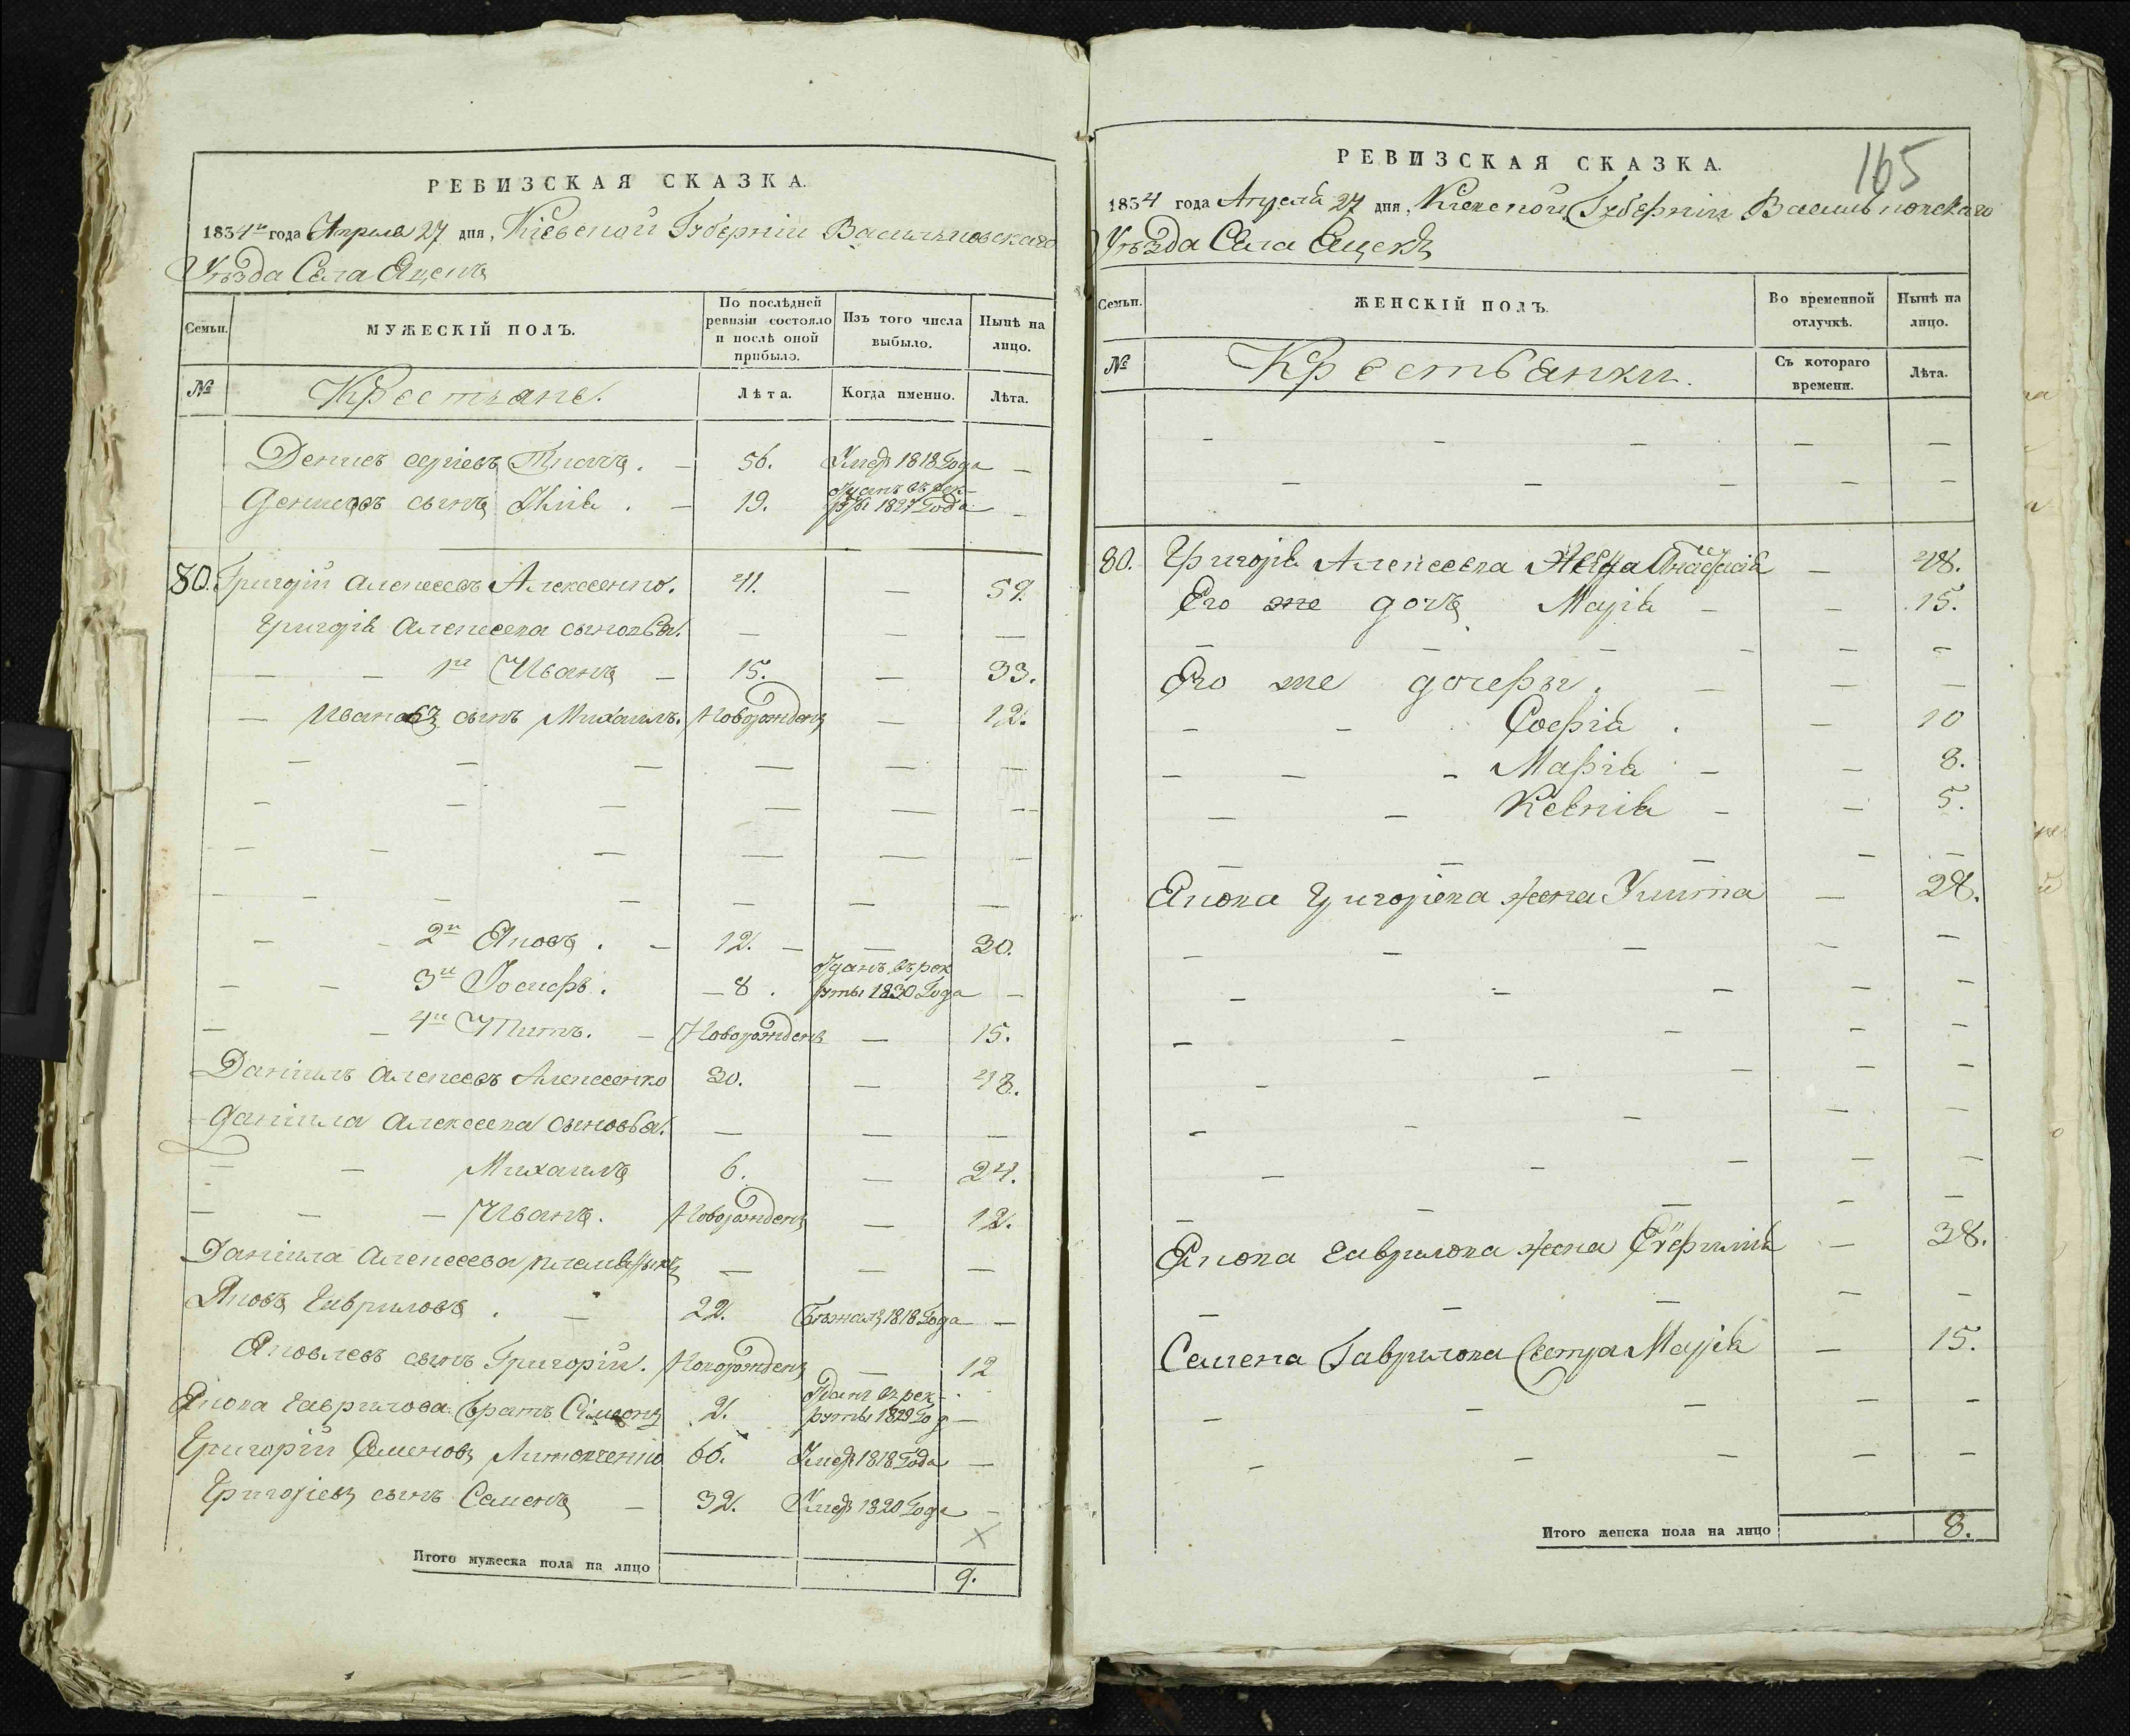 РЕВИЗСКАЯ СКАЗКА.
1834го года Апреля 27 дня, Кіевской Губерніи Васильковскаго
Уѣзда Села Яцекъ
Семьи.
МУЖЕСКІЙ ПОЛЪ.
По послѣдней ревизіи состояло и послѣ оной прибыло.
Изъ того числа выбыло.
Нынѣ на лицо.
№
Крестьяне.
Лѣта.
Когда именно.
Лѣта.
Денисъ сергіевъ Ткачъ. 56. Умеръ 1818 Года
Денисовъ сынъ Илія. 19. Отданъ въ рек-
руты 1827 Года
80. Григорій алексеевъ Алексеенко. 41. — 59.
Григорія алексеева сыновья. — — —
1й Иванъ — 15. — 33.
Ивановъ сынъ Михаилъ. Новорожденъ — 12.
2й Яковъ. — 12. — 30.
3й Іосифъ. — 8. Отданъ въ рек
руты 1830 Года —
4й Титъ. — Новорожденъ — 15.
Даніилъ алексеевъ Алексеенко 30. — 48.
Даніила алексеева сыновья. — — —
Михаилъ 6. — 24.
Иванъ. Новорожденъ — 12.
Даніила алексеева племянникъ — — —
Яковъ Гавриловъ. — 22. Бежалъ 1818 Года —
Яковлевъ сынъ Григорій. Новорожденъ — 12
Якова Гаврилова братъ Сімеонъ 2. Отданъ въ рек-
руты 1829 Год —
Григорій Семеновъ 66. Умеръ 1818 Года —
Григоріевъ сынъ Семенъ — 32. Умеръ 1820 Года —
Х
Итого мужеска пола на лицо 9.
165
РЕВИЗСКАЯ СКАЗКА.
1834 года Апреля 27 дня, Кіевской Губерніи Васильковскаго
Уѣзда Села Яцекъ
Семьи.
ЖЕНСКІЙ ПОЛЪ.
Во временной отлучкѣ.
Нынѣ на лицо.
№
Крестьянки.
Съ котораго времени.
Лѣта.
80. Григорія Алексеева Анастасія — 48.
Его же дочь Марія — 15.
Его же дочеры.
София. — 10
Марія — 8.
Ксенія — 5.
Якова Григоріева жена Улита — 28.
Якова Гаврилова жена Евфимія — 38.
Семена Гаврилова сестра Марія — 15.
Итого женска пола на лицо 8.